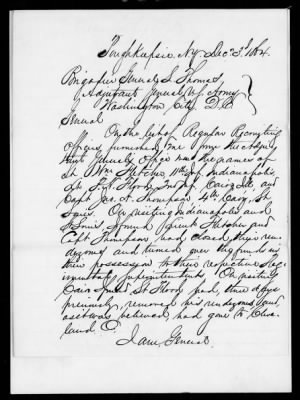 Poughkeepsie N.Y. Dec 3d, 1864.
Brigadier General L. Thomas
Adjutant General U.S. Army
Washington City D.C.
General
On the list of Regular Recruiting
Officers furnished me from the Adju
tant General's Office was the names of
Lt. Wm Fletcher 11th Inf. Indianapolis,
Lt. Inf. Cairo, Ills. and
Capt. Jas. A. Thompson 4th Cavy. St.
Louis. On visiting Indianapolis and
St. Louis I found Lieut. Fletcher and
Capt. Thompson, had closed their ren-
dezvous and turned over the funds in
their possession to their respective Reg-
imental Superintendents. On visiting
Cairo Lt. had, three days
previously removed his rendezvous, and
as it was believed, had gone to Cleve-
land O.
I am General